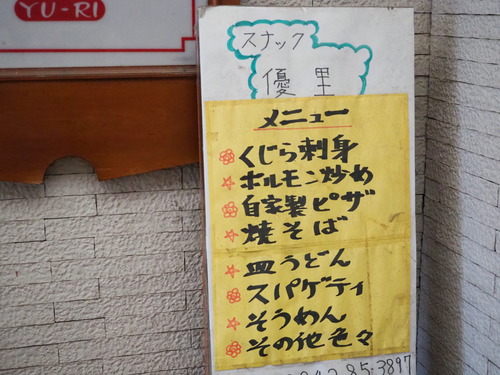 YU-RI
スナック
優里
メニュー
くじら刺身
ホルモン炒め
自家製ピザ
焼そば
皿うどん
スパゲティ
そうめん
その他色々
85-3897